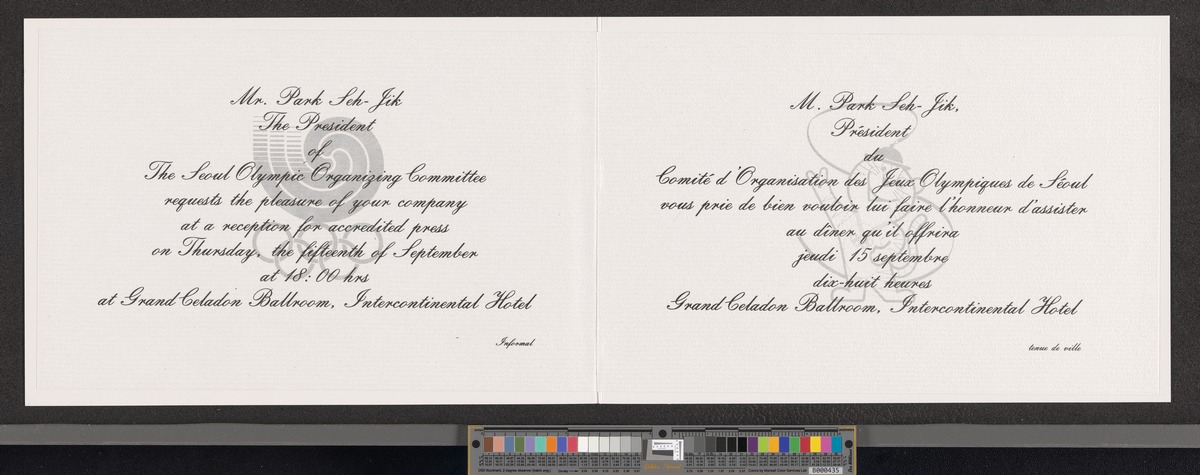 Mr. Park Seh-Jik
The President
of
The Seoul Olympic Organizing Committee
requests the pleasure of your company
at a reception for accredited press
on Thursday, the fifteenth of September
at 18:00 hrs
at Grand Celadon Ballroom, Intercontinental Hotel
Informal
M. Park Seh-Jik,
Président
du
Comité d'Organisation des Jeux Olympiques de Séoul
vous prie de bien vouloir lui faire l'honneur d'assister
au dîner qu'il offrira
jeudi 15 septembre
dix-huit heures
Grand Celadon Ballroom, Intercontinental Hotel
tenue de ville
B000435